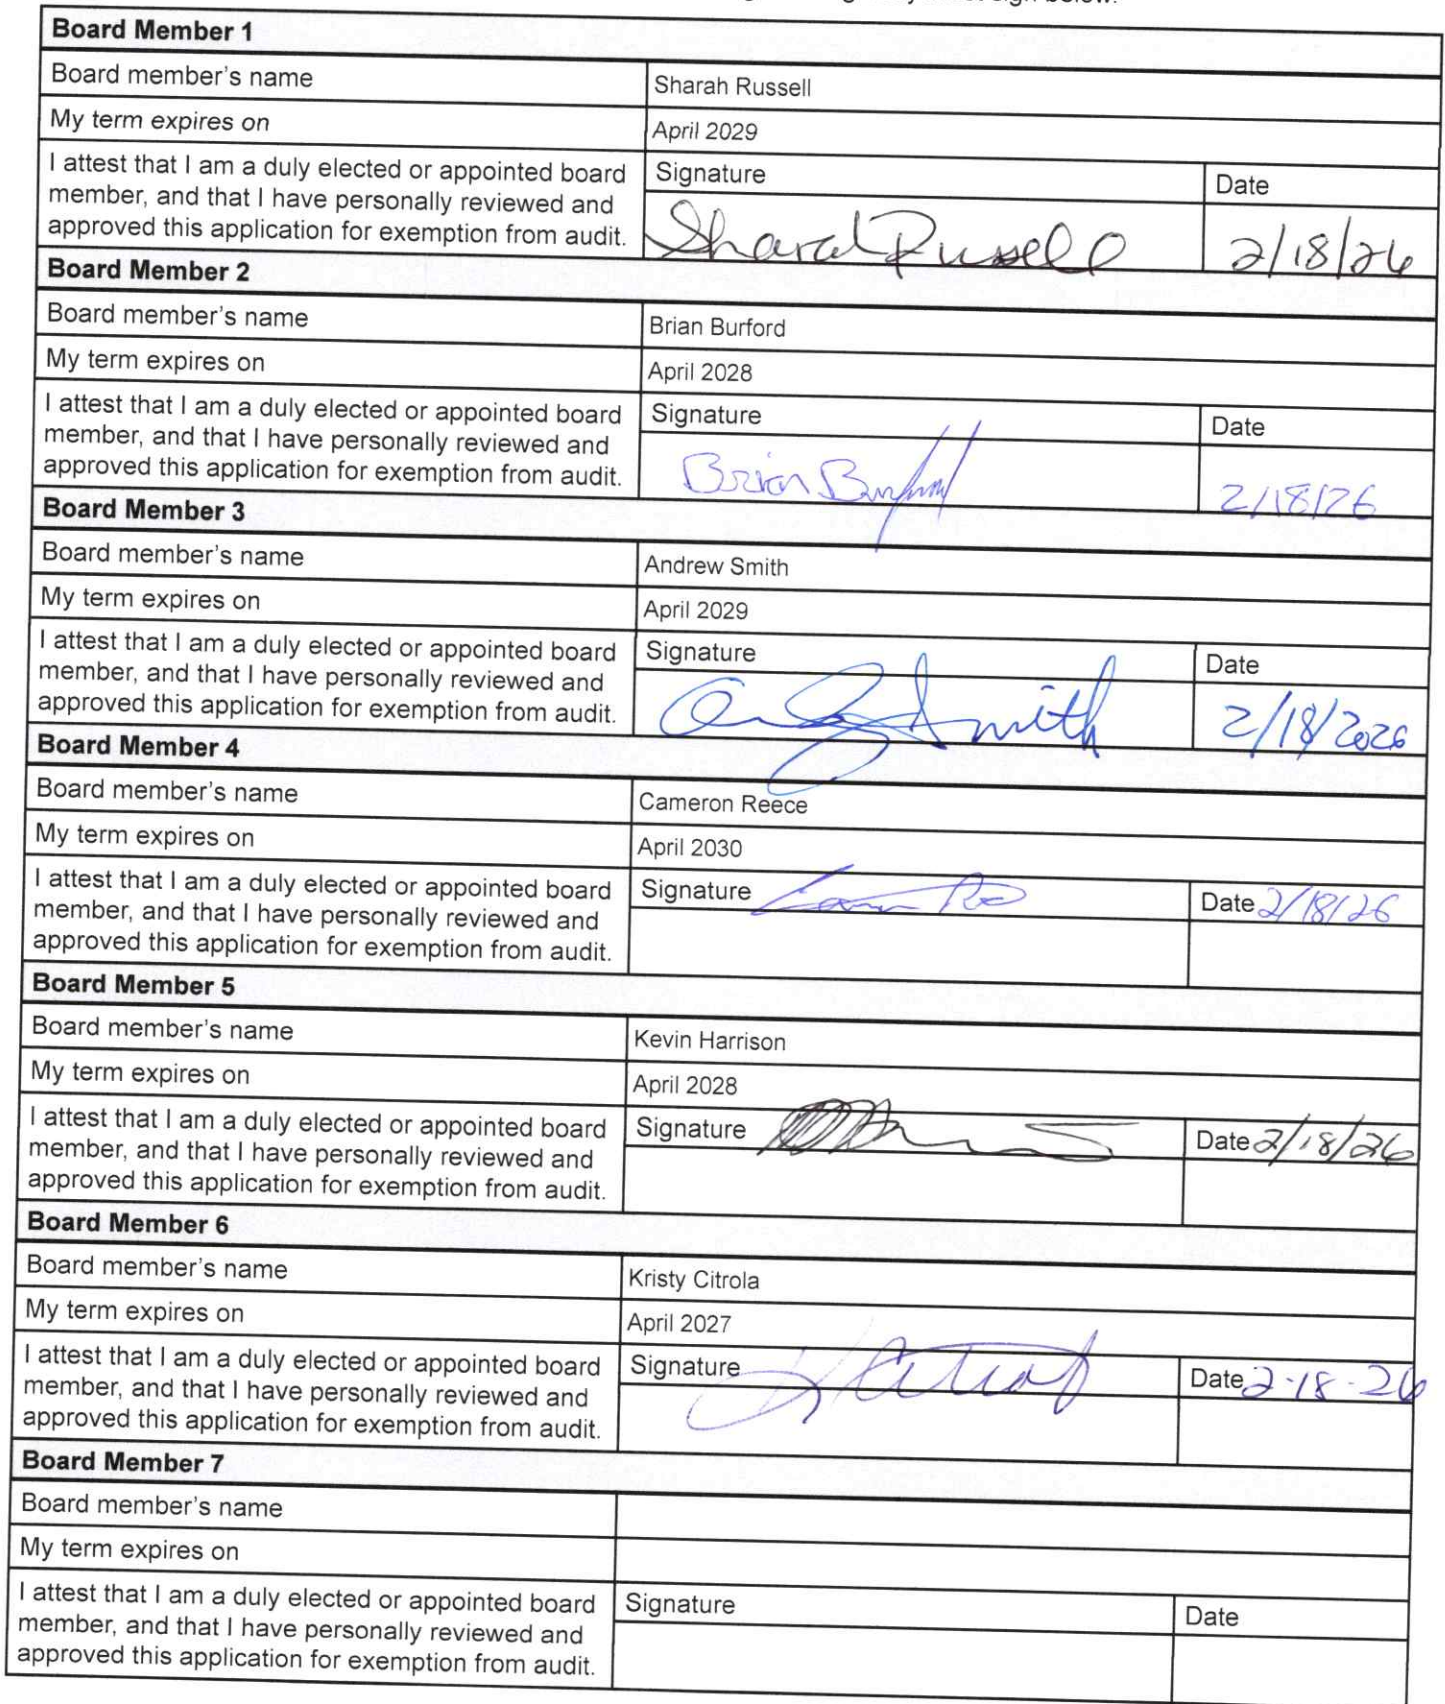 sign below.
Board Member 1
Board member's name Sharah Russell
My term expires on April 2029
I attest that I am a duly elected or appointed board Signature Date
member, and that I have personally reviewed and
approved this application for exemption from audit. Sharah Russell 2/18/26
Board Member 2
Board member's name Brian Burford
My term expires on April 2028
I attest that I am a duly elected or appointed board Signature Date
member, and that I have personally reviewed and
approved this application for exemption from audit. Brian Burford 2/18/26
Board Member 3
Board member's name Andrew Smith
My term expires on April 2029
I attest that I am a duly elected or appointed board Signature Date
member, and that I have personally reviewed and
approved this application for exemption from audit. Smith 2/18/2026
Board Member 4
Board member's name Cameron Reece
My term expires on April 2030
I attest that I am a duly elected or appointed board Signature Date 2/18/26
member, and that I have personally reviewed and
approved this application for exemption from audit.
Board Member 5
Board member's name Kevin Harrison
My term expires on April 2028
I attest that I am a duly elected or appointed board Signature Date 2/18/26
member, and that I have personally reviewed and
approved this application for exemption from audit.
Board Member 6
Board member's name Kristy Citrola
My term expires on April 2027
I attest that I am a duly elected or appointed board Signature Date 2-18-26
member, and that I have personally reviewed and
approved this application for exemption from audit.
Board Member 7
Board member's name
My term expires on
I attest that I am a duly elected or appointed board Signature Date
member, and that I have personally reviewed and
approved this application for exemption from audit.